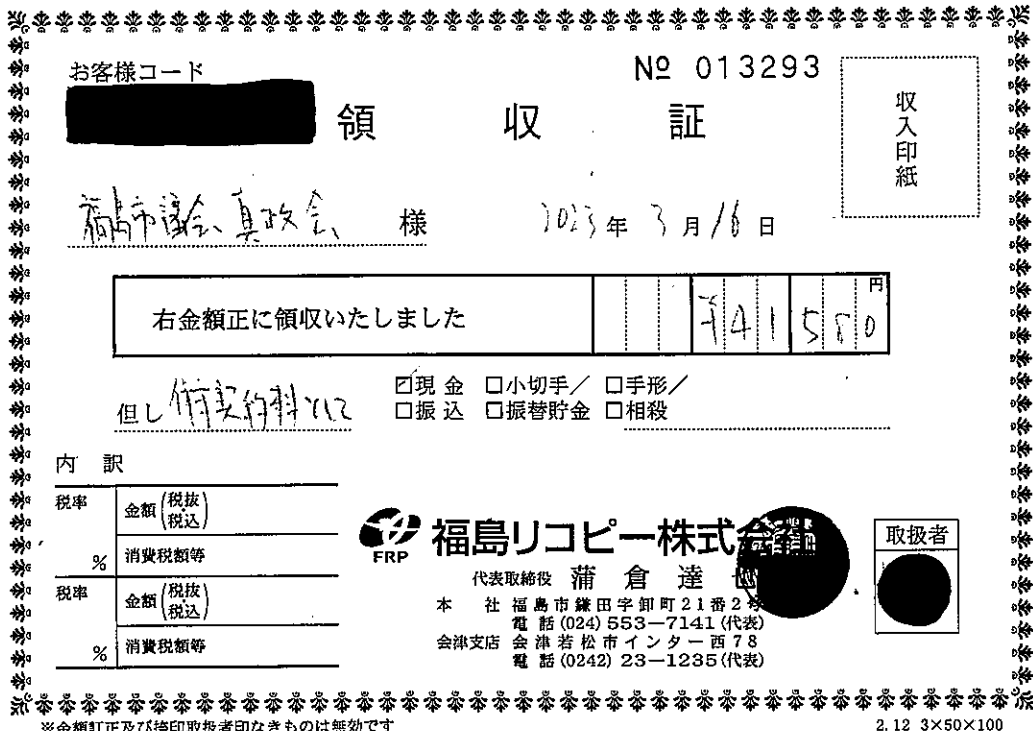 お客様コード
№ 013293
領収証
収入印紙
福島市議会 真政会 様
2023年3月16日
右金額正に領収いたしました
¥41580円
但し 契約料として
☑現金 □小切手/ □手形/
□振込 □振替貯金 □相殺
内訳
税率 金額(税抜 税込)
% 消費税額等
税率 金額(税抜 税込)
% 消費税額等
FRP 福島リコピー株式会社
代表取締役 蒲倉達也
本社 福島市鎌田字卸町21番2号
電話(024)553—7141(代表)
会津支店 会津若松市インター西78
電話(0242)23—1235(代表)
取扱者
※金額訂正及び捨印取扱者印なきものは無効です
2.12 3×50×100